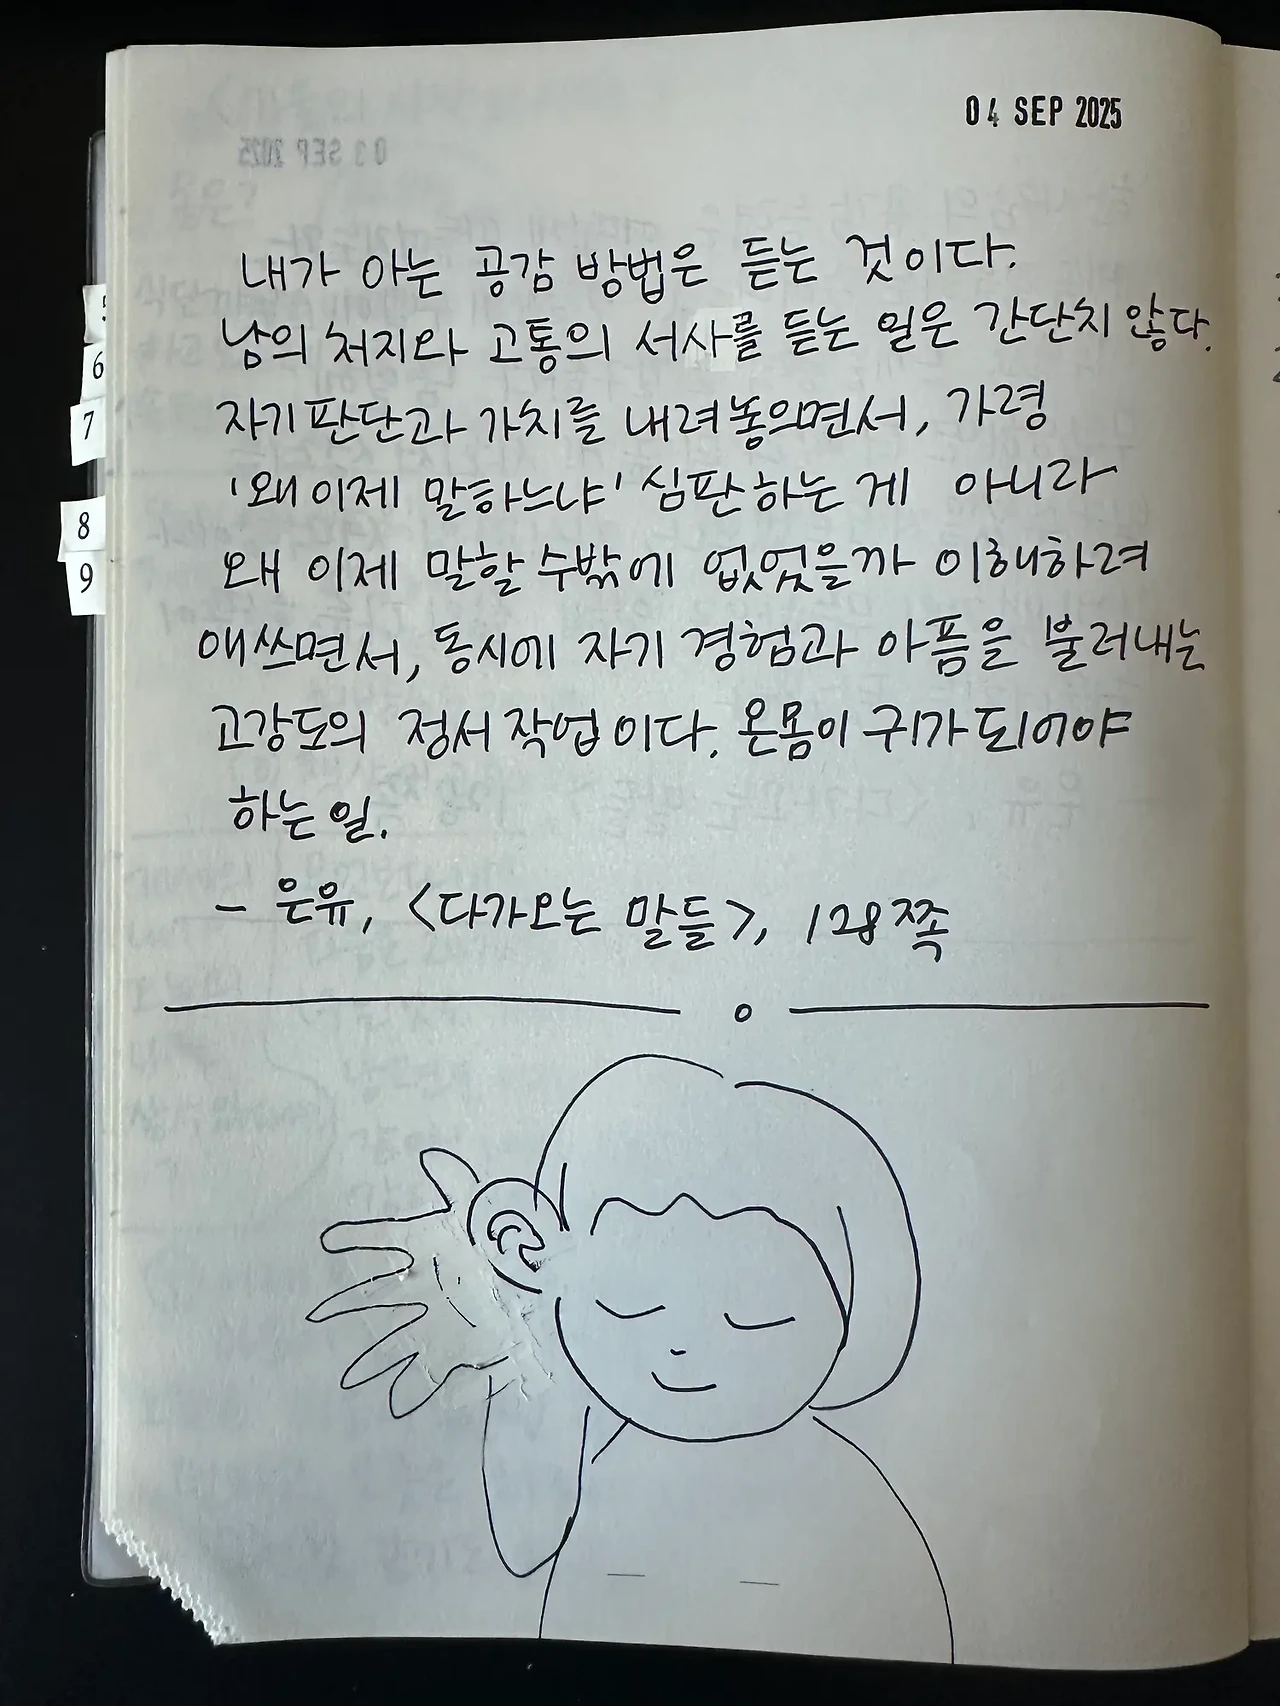 04 SEP 2025
내가 아는 공감 방법은 듣는 것이다.
남의 처지와 고통의 서사를 듣는 일은 간단치 않다.
자기 판단과 가치를 내려놓으면서, 가령
'왜 이제 말하느냐' 심판하는 게 아니라
왜 이제 말할 수밖에 없었을까 이해하려
애쓰면서, 동시에 자기 경험과 아픔을 불러내는
고강도의 정서 작업이다. 온몸이 귀가 되어야
하는 일.
- 은유, <다가오는 말들>, 128쪽
6
7
8
9